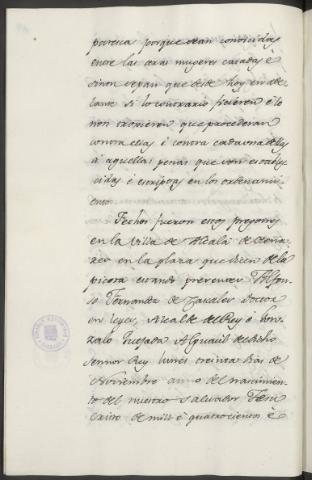 paresca porque sean conoscidas
entre las otras mugeres casadas, é
sinon sepan que desde hoy en ade
lante si lo contrario fisieren é lo
non cumplieren que procederan
contra ellas é contra cada una dellas
á aquellas penas que son estables
cidas é escriptas en los ordenami
entos
Fechos fueron estos pregones
en la Villa de Alcalá de Hena
res en la plaza que disen de la
picota estando presentes Alfon
so Fernandez de Doctor
en Leyes, Alcalde del Rey é Gon
zalo Quesada Alguacil de dicho
Sennor Rey lunes treinta dias de
Noviembre anno del nascimien
to del nuestro Salvador Jesu
Cristo de mill é quatrocientos é